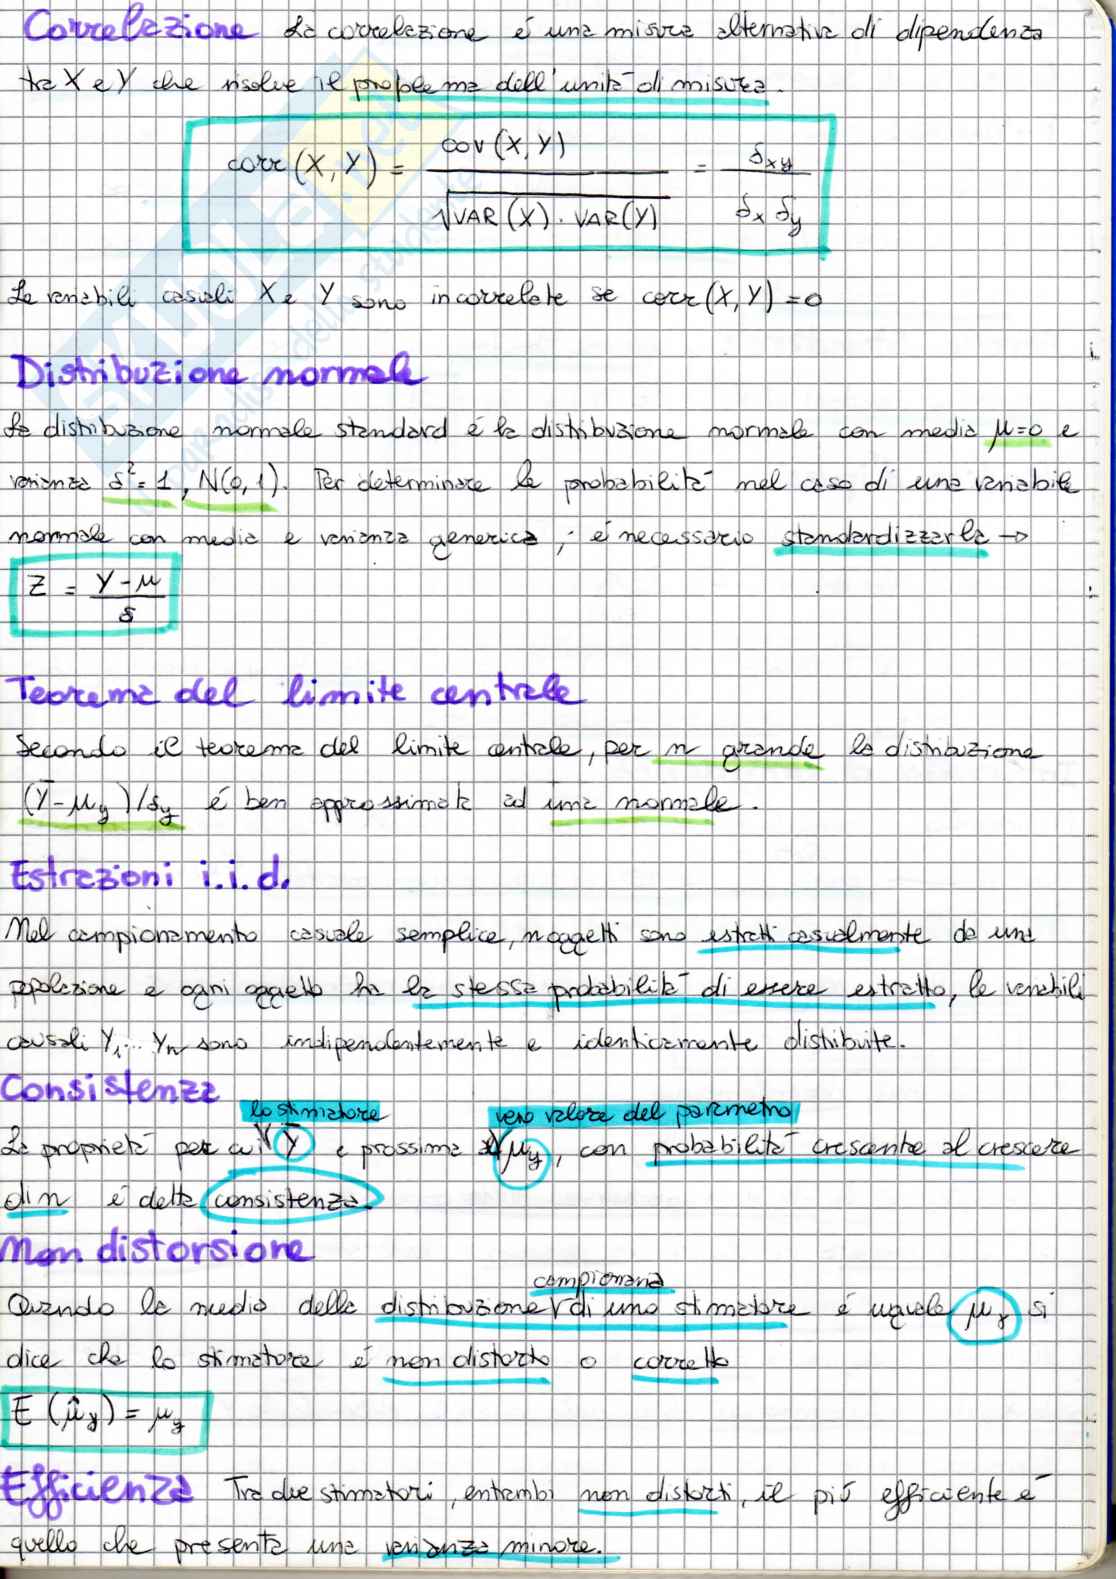 Correlazione La correlazione é una misura alternativa di dipendenza
tra X e Y che risolve il problema dell'unità di misura.
corr(X, Y) = cov(X, Y) / √VAR(X) · VAR(Y) = δxy / δx δy
Le variabili casuali X e Y sono incorrelate se corr(X, Y) = 0
Distribuzione normale
La distribuzione normale standard é la distribuzione normale con media μ=0 e
varianza δ²=1, N(0,1). Per determinare la probabilità nel caso di una variabile
normale con media e varianza generica, é necessario standardizzarla →
Z = Y - μ / δ
Teorema del limite centrale
Secondo il teorema del limite centrale, per n grande la distribuzione
(Ȳ - μy)/δy é ben approssimata ad una normale.
Estrazioni i.i.d.
Nel campionamento casuale semplice, n oggetti sono estratti casualmente da una
popolazione e ogni oggetto ha la stessa probabilità di essere estratto, le variabili
causali Y₁... Yn sono indipendentemente e identicamente distribuite.
Consistenza
lo stimatore vero valore del parametro
La proprietà per cui Ȳ é prossima a μy, con probabilità crescente al crescere
di n é detta consistenza.
Non distorsione
campionaria
Quando la media della distribuzione di uno stimatore é uguale μy si
dice che lo stimatore é non distorto o corretto
E (μ̂y) = μy
Efficienza Tra due stimatori, entrambi non distorti, il piú efficiente é
quello che presenta una varianza minore.